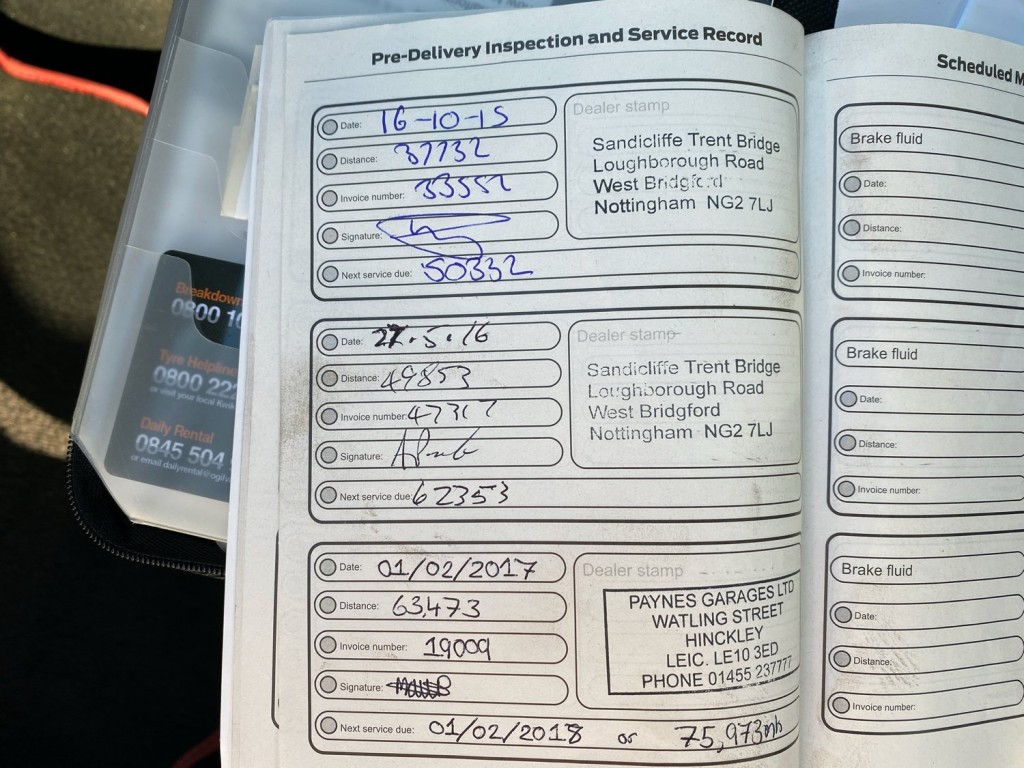 Pre-Delivery Inspection and Service Record
Date: 16-10-15
Distance: 37732
Invoice number: 33552
Signature:
Next service due: 50332
Dealer stamp
Sandicliffe Trent Bridge
Loughborough Road
West Bridgford
Nottingham NG2 7LJ
Date: 27.5.16
Distance: 49853
Invoice number: 47317
Signature:
Next service due: 62353
Dealer stamp
Sandicliffe Trent Bridge
Loughborough Road
West Bridgford
Nottingham NG2 7LJ
Date: 01/02/2017
Distance: 63,473
Invoice number: 19009
Signature:
Next service due: 01/02/2018 or 75,973mls
Dealer stamp
PAYNES GARAGES LTD
WATLING STREET
HINCKLEY
LEIC. LE10 3ED
PHONE 01455 237777
Scheduled M
Brake fluid
Date:
Distance:
Invoice number:
Brake fluid
Date:
Distance:
Invoice number:
Brake fluid
Date:
Distance:
Invoice number:
Breakdown
0800 10
Tyre Helpline
0800 222
or visit your local Kwik
Daily Rental
0845 504
or email dailyrental@ogilv